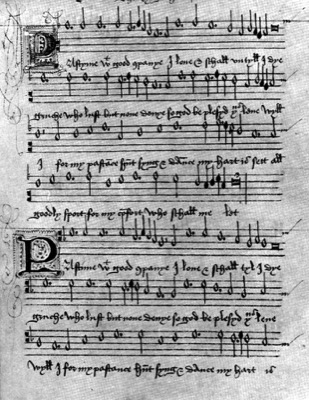 Pastyme wᵗ good cōpanye I loue & schall vntyll I dye
gruche who lust but none denye so god be plesyd þᵘˢ leue wyll
I for my pastāce hūt syng & dāce my hart is sett all
goodly sport for my cōfort who schall me let
Pastyme wᵗ good cōpanye I loue & schall tyl I dye
gruche who lust but none denye so god be plesyd þᵘˢ leue
wyll I for my pastance hūt syng & dāce my hart is